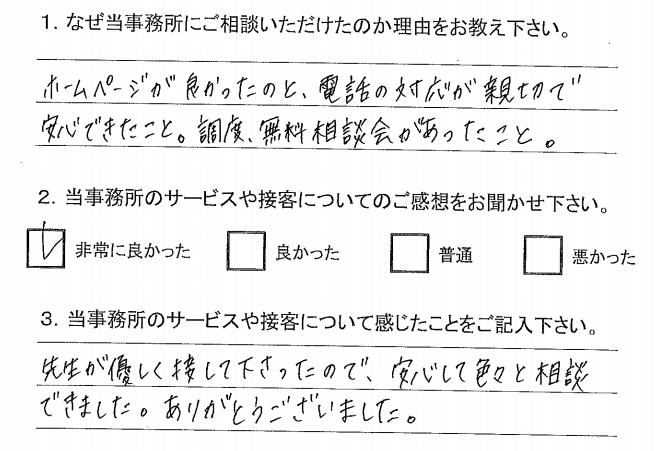 1. なぜ当事務所にご相談いただけたのか理由をお教え下さい。
ホームページが良かったのと、電話の対応が親切で
安心できたこと。調度、無料相談会があったこと。
2. 当事務所のサービスや接客についてのご感想をお聞かせ下さい。
非常に良かった 良かった 普通 悪かった
3. 当事務所のサービスや接客について感じたことをご記入下さい。
先生が優しく接して下さったので、安心して色々と相談
できました。ありがとうございました。